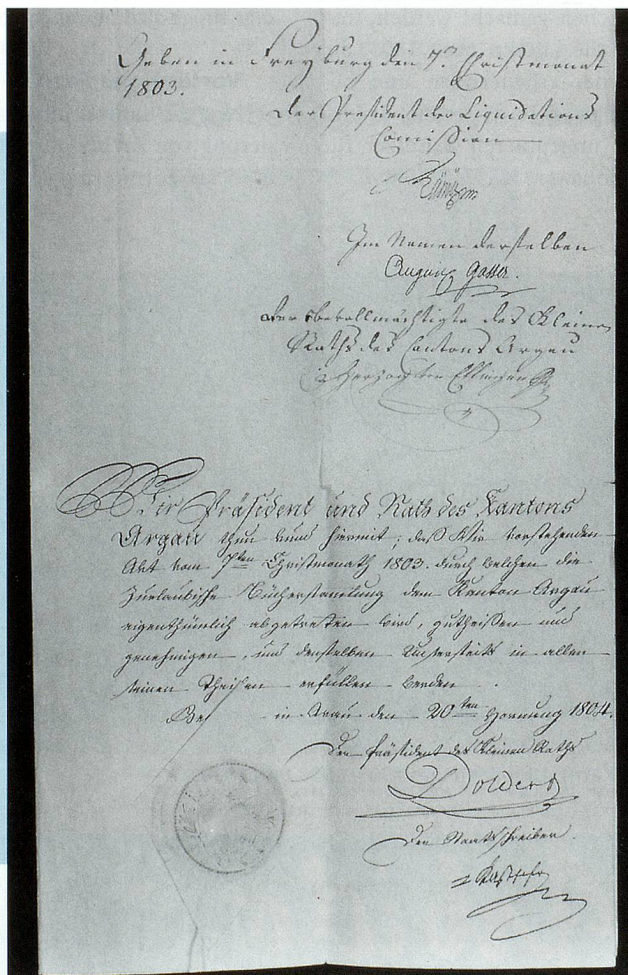 Geben in Freyburg den 7n Cristmonat
1803.
Der President der Liquidations
Comission
Im Namen derselben
Augui Gasser.
der bevollmächtigte des Kleinen
Raths des Cantons Argau
Herzog von Effingen
Wir Präsident und Rath des Kantons
Argau thun kund hiermit, daß Wir vorstehenden
Akt vom 7ten Christmonath 1803. durch welchen die
Zurlaubische Büchersamlung dem Kanton Argau
eigenthümlich abgetretten wird, gutheißen und
genehmigen, und denselben Unserseits in allen
seinen Theilen erfüllen werden.
in Arau den 20ten Hornung 1804.
Der Präsident des Kleinen Raths
Dolder
Der Staatsschreiber
Kasthofer